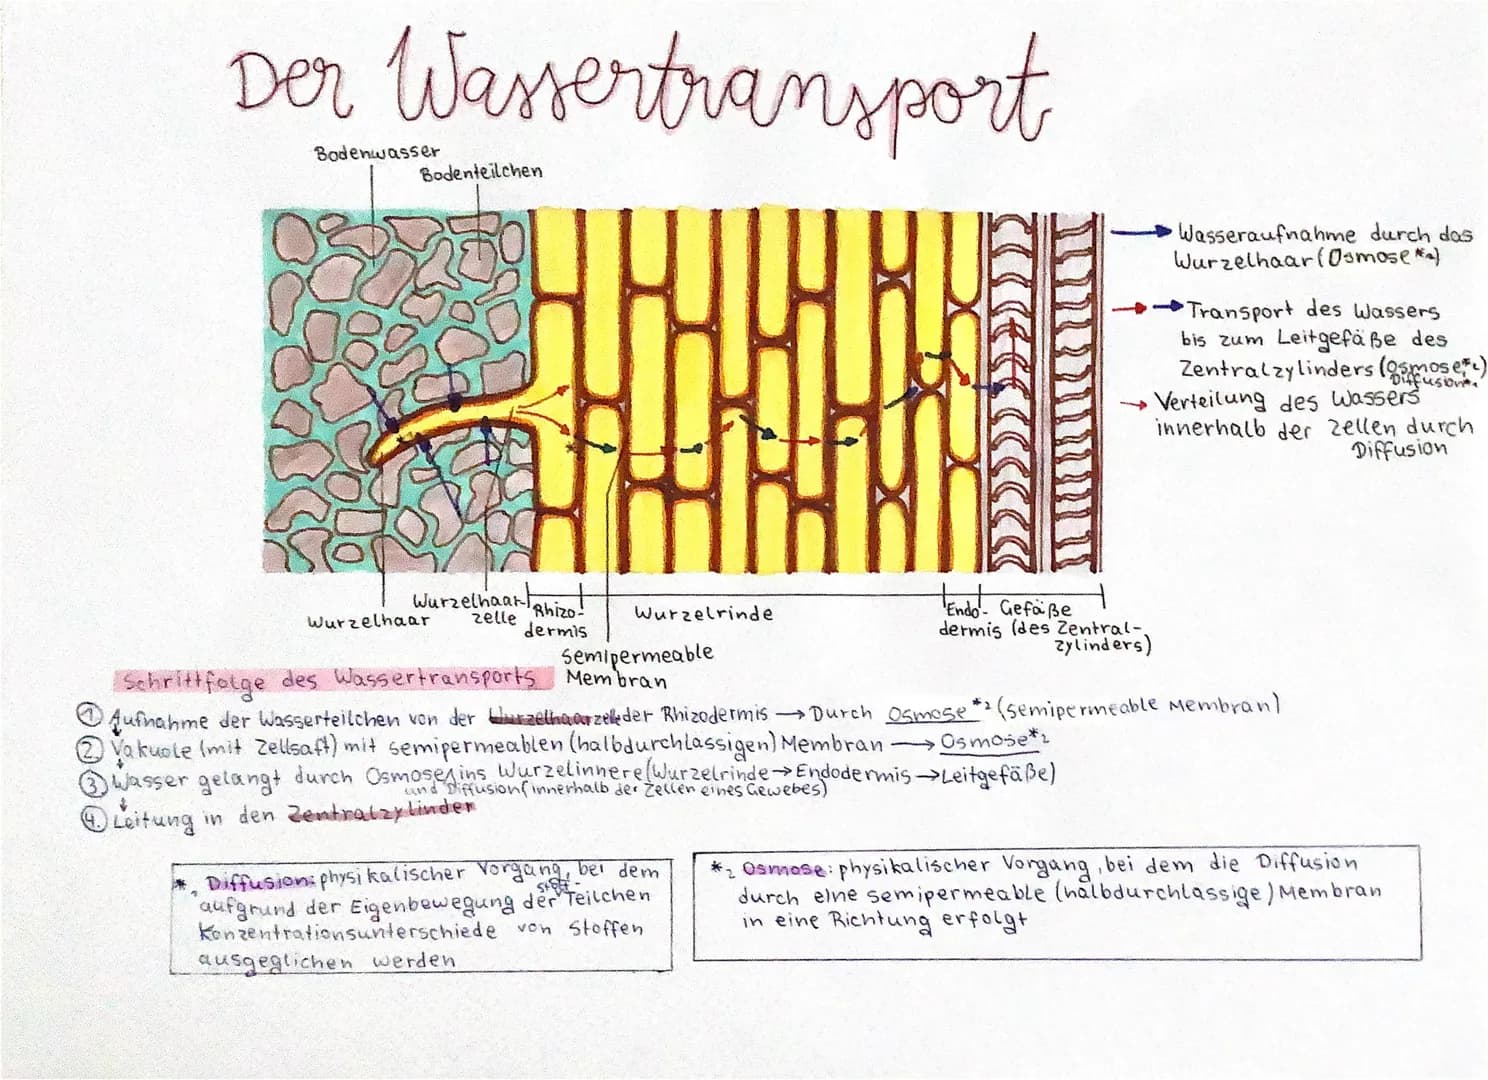 Der Wassertransport
Bodenwasser
Bodenteilchen
Wasseraufnahme durch das
Wurzelhaar (Osmose*2)
Transport des Wassers
bis zum Leitgefäße des
Zentralzylinders (Osmose*2,
Diffusion*1)
Verteilung des Wassers
innerhalb der Zellen durch
Diffusion
Wurzelhaar
Wurzelhaar-
zelle
Rhizo-
dermis
Semipermeable
Membran
Wurzelrinde
Endo-
dermis
Gefäße
(des Zentral-
zylinders)
Schrittfolge des Wassertransports
1. Aufnahme der Wasserteilchen von der Wurzelhaarzelle der Rhizodermis → Durch Osmose*2 (semipermeable Membran)
2. Vakuole (mit Zellsaft) mit semipermeablen (halbdurchlässigen) Membran → Osmose*2
3. Wasser gelangt durch Osmose ins Wurzelinnere (Wurzelrinde → Endodermis → Leitgefäße)
und Diffusion (innerhalb der Zellen eines Gewebes)
4. Leitung in den Zentralzylinder
*1 Diffusion: physikalischer Vorgang, bei dem
aufgrund der Eigenbewegung der Stoff-Teilchen
Konzentrationsunterschiede von Stoffen
ausgeglichen werden
*2 Osmose: physikalischer Vorgang, bei dem die Diffusion
durch eine semipermeable (halbdurchlässige) Membran
in eine Richtung erfolgt